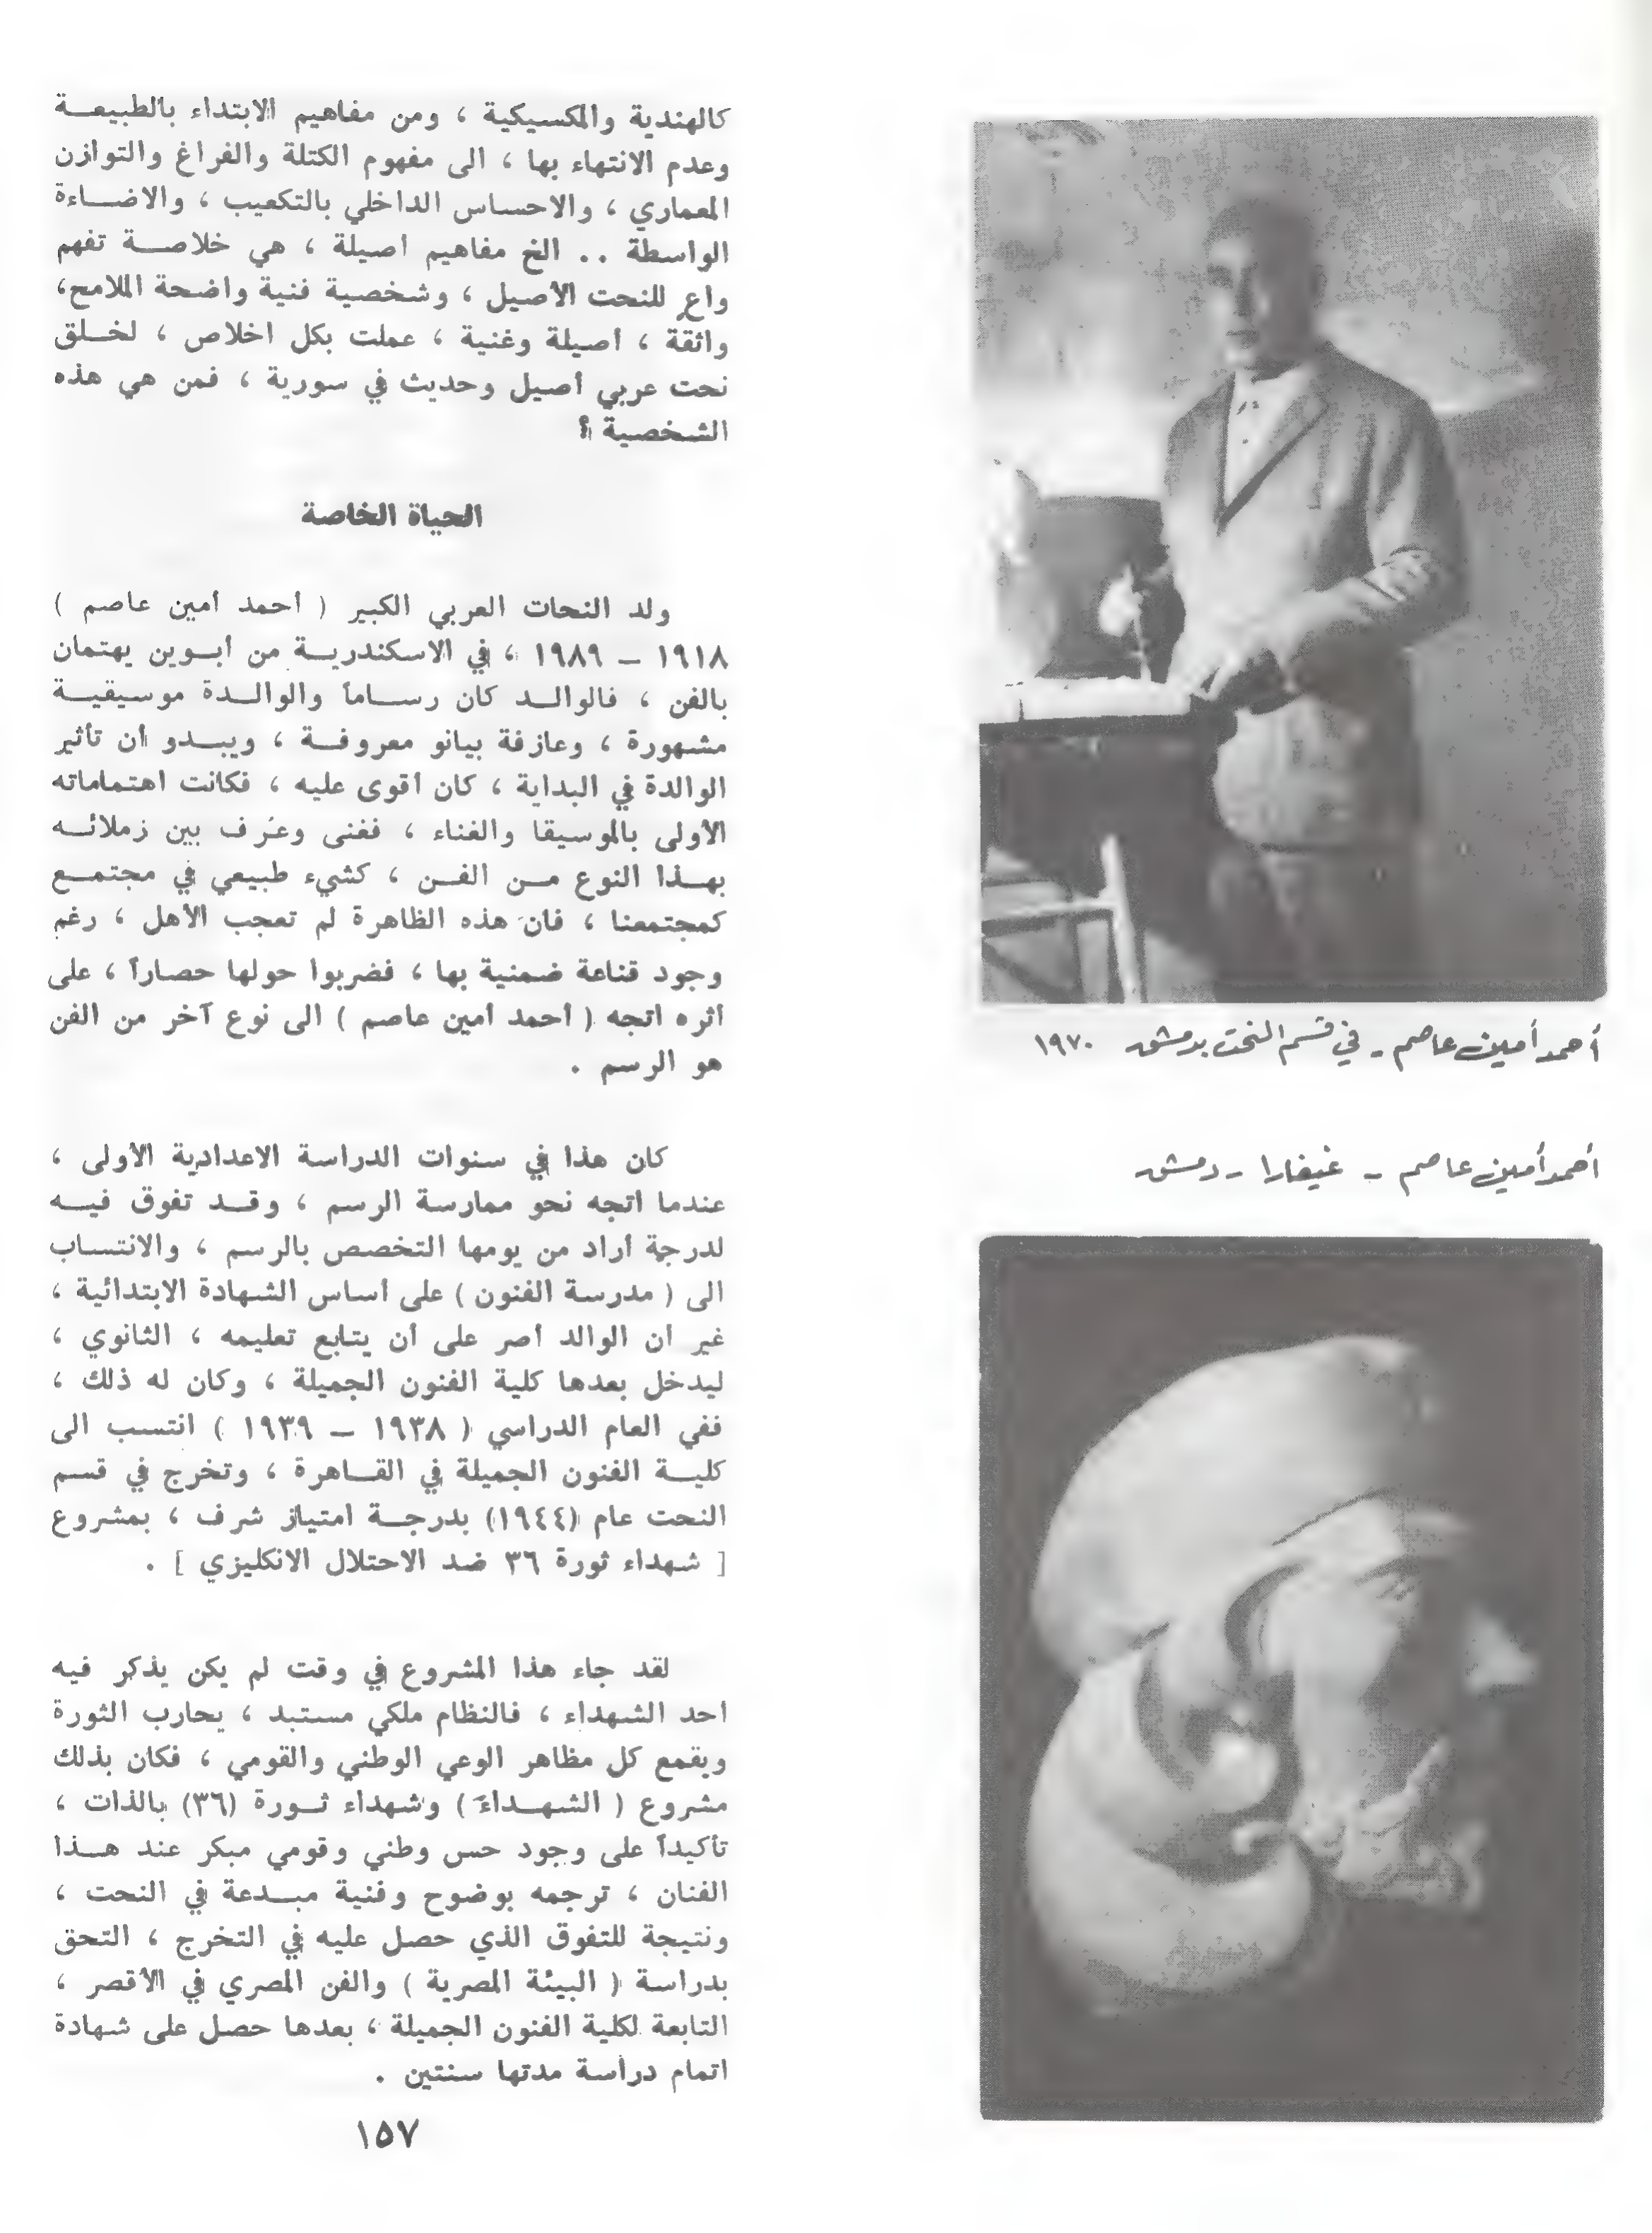 أحمد أمين عاصم - في قسم النحت بدمشق ١٩٧٠
أحمد أمين عاصم - غيفارا - دمشق
كالهندية والمكسيكية ، ومن مفاهيم الابتداء بالطبيعــة
وعدم الانتهاء بها ، الى مفهوم الكتلة والفراغ والتوازن
المعماري ، والاحساس الداخلي بالتكعيب ، والاضــاءة
الواسطة .. الخ مفاهيم اصيلة ، هي خلاصــة تفهم
واعٍ للنحت الأصيل ، وشخصية فنية واضحة الملامح،
واثقة ، أصيلة وغنية ، عملت بكل اخلاص ، لخــلق
نحت عربي أصيل وحديث في سورية ، فمن هي هذه
الشخصية ؟
الحياة الخاصة
ولد النحات العربي الكبير ( أحمد أمين عاصم )
١٩١٨ – ١٩٨٩ ، في الاسكندريــة من أبــوين يهتمان
بالفن ، فالوالــد كان رســاماً والوالــدة موسيقيــة
مشهورة ، وعازفة بيانو معروفــة ، ويبــدو أن تأثير
الوالدة في البداية ، كان أقوى عليه ، فكانت اهتماماته
الأولى بالموسيقا والغناء ، فغنى وعُرف بين زملائــه
بهــذا النوع مــن الفــن ، كشيء طبيعي في مجتمــع
كمجتمعنا ، فان هذه الظاهرة لم تعجب الأهل ، رغم
وجود قناعة ضمنية بها ، فضربوا حولها حصاراً ، على
أثره اتجه ( أحمد أمين عاصم ) الى نوع آخر من الفن
هو الرسم .
كان هذا في سنوات الدراسة الاعدادية الأولى ،
عندما اتجه نحو ممارسة الرسم ، وقــد تفوق فيــه
لدرجة أراد من يومها التخصص بالرسم ، والانتساب
الى ( مدرسة الفنون ) على أساس الشهادة الابتدائية ،
غير أن الوالد أصر على أن يتابع تعليمه ، الثانوي ،
ليدخل بعدها كلية الفنون الجميلة ، وكان له ذلك ،
ففي العام الدراسي ( ١٩٣٨ – ١٩٣٩ ) انتسب الى
كليــة الفنون الجميلة في القــاهرة ، وتخرج في قسم
النحت عام (١٩٤٤) بدرجــة امتياز شرف ، بمشروع
[ شهداء ثورة ٣٦ ضد الاحتلال الانكليزي ] .
لقد جاء هذا المشروع في وقت لم يكن يذكر فيه
أحد الشهداء ، فالنظام ملكي مستبد ، يحارب الثورة
ويقمع كل مظاهر الوعي الوطني والقومي ، فكان بذلك
مشروع ( الشهــداء ) وشهداء ثــورة (٣٦) بالذات ،
تأكيداً على وجود حس وطني وقومي مبكر عند هــذا
الفنان ، ترجمه بوضوح وفنية مبــدعة في النحت ،
ونتيجة للتفوق الذي حصل عليه في التخرج ، التحق
بدراسة ( البيئة المصرية ) والفن المصري في الأقصر ،
التابعة لكلية الفنون الجميلة ، بعدها حصل على شهادة
اتمام دراسة مدتها سنتين .
١٥٧